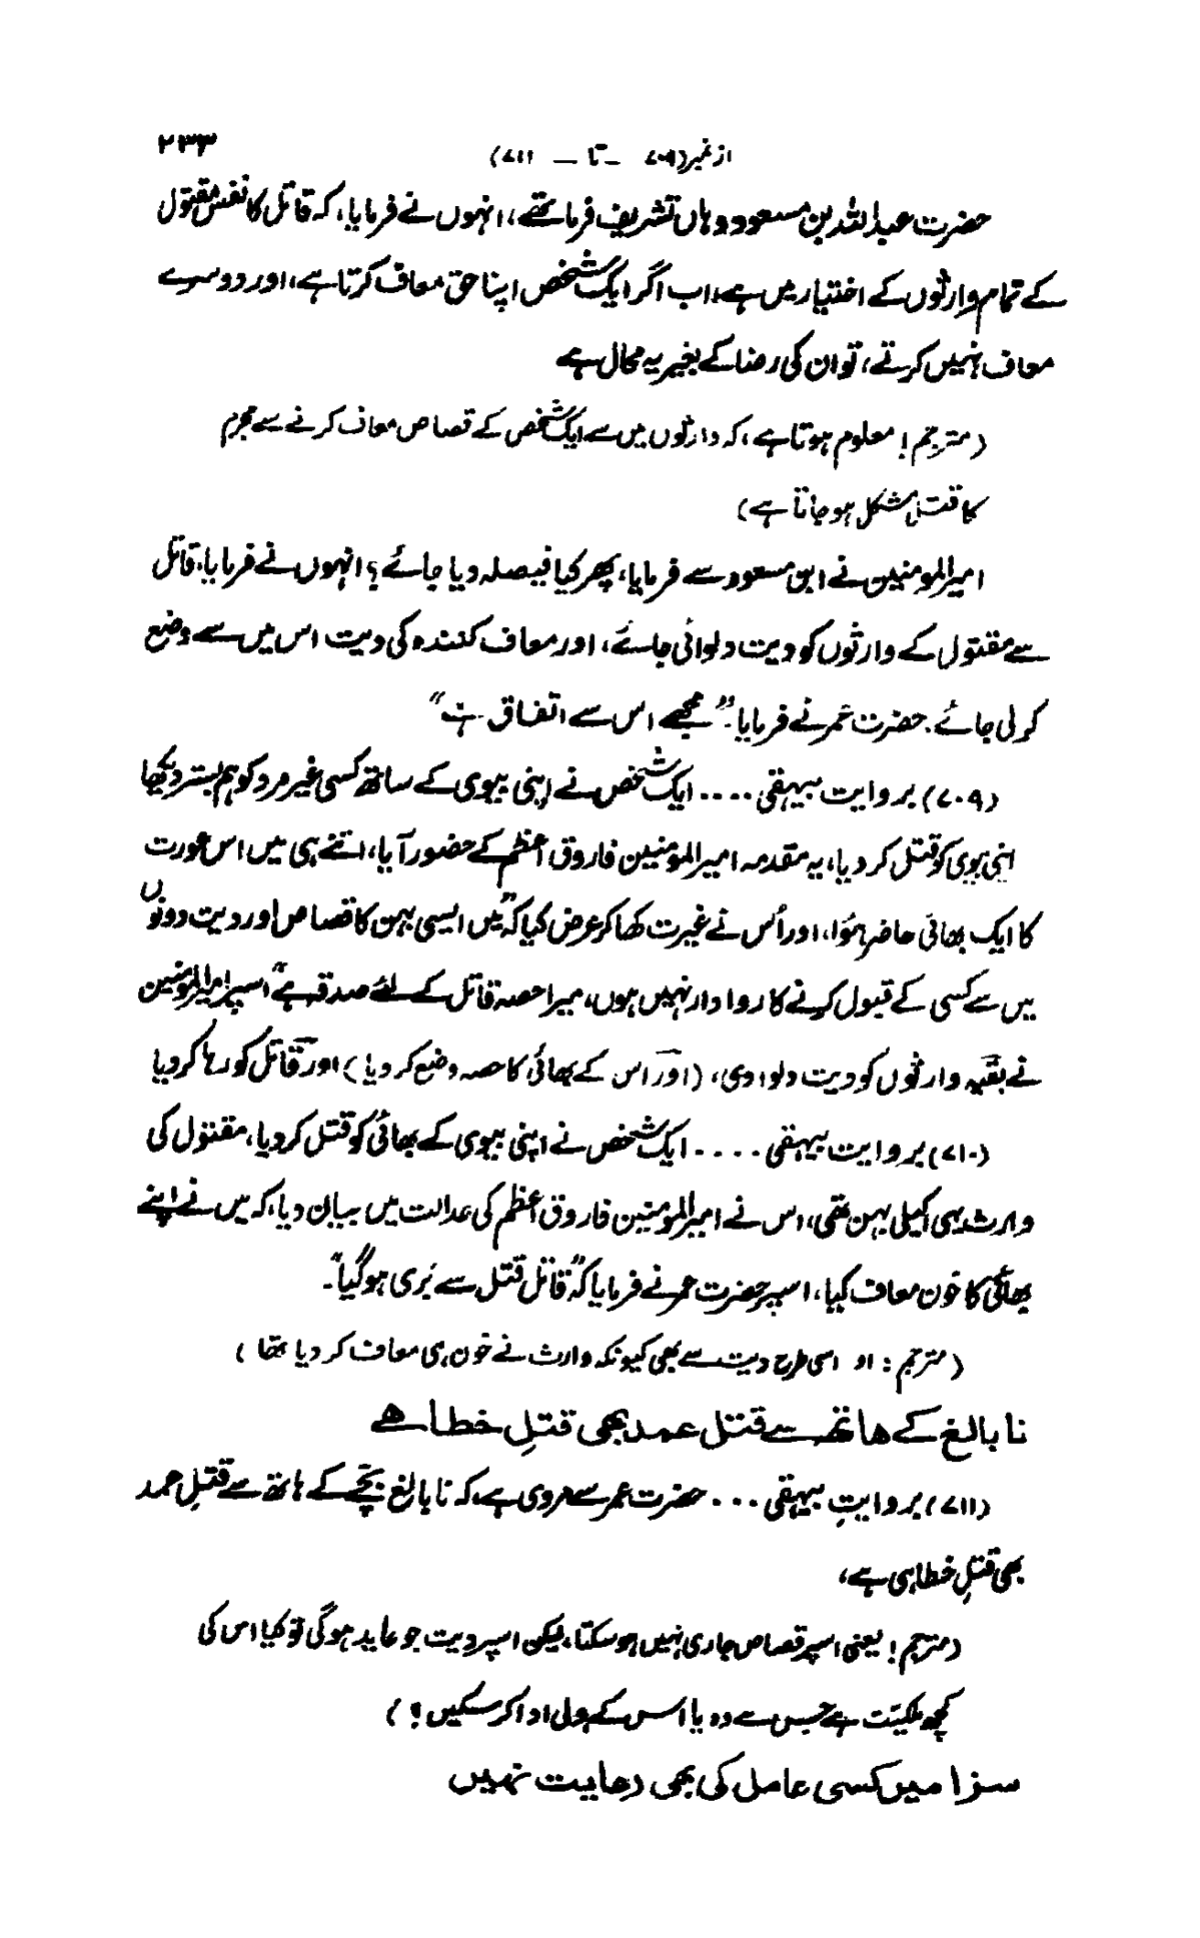 ۲۳۳
از نمبر(۷۰۹ — تا — ۷۱۱)
حضرت عبداللہ بن مسعود وہاں تشریف فرما تھے، انہوں نے فرمایا، کہ قاتل کا نفس مقتول
کے تمام وارثوں کے اختیار میں ہے، اب اگر ایک شخص اپنا حق معاف کرتا ہے، اور دوسرے
معاف نہیں کرتے، تو ان کی رضا کے بغیر یہ محال ہے
(مترجم! معلوم ہوتا ہے، کہ وارثوں میں سے ایک شخص کے قصاص معاف کرنے سے مجرم
کا قتل مشکل ہو جاتا ہے)
امیرالمومنین نے ابن مسعود سے فرمایا، پھر کیا فیصلہ دیا جائے؟ انہوں نے فرمایا، قاتل
سے مقتول کے وارثوں کو دیت دلوائی جائے، اور معاف کنندہ کی دیت اس میں سے وضع
کر لی جائے۔ حضرت عمر نے فرمایا۔ "مجھے اس سے اتفاق ہے"
(۷۰۹) بروایت بیہقی .... ایک شخص نے اپنی بیوی کے ساتھ کسی غیر مرد کو ہم بستر دیکھا
اپنی بیوی کو قتل کر دیا، یہ مقدمہ امیرالمومنین فاروق اعظم کے حضور آیا، اتنے ہی میں اس عورت
کا ایک بھائی حاضر ہوا، اور اُس نے غیرت کھا کر عرض کیا کہ "میں ایسی بہن کا قصاص اور دیت دونوں
میں سے کسی کے قبول کرنے کا روا دار نہیں ہوں، میرا حصہ قاتل کے لئے صدقہ ہے" اسپر امیرالمومنین
نے بقیہ وارثوں کو دیت دلوا دی، (اور اس کے بھائی کا حصہ وضع کر دیا) اور قاتل کو رہا کر دیا
(۷۱۰) بروایت بیہقی .... ایک شخص نے اپنی بیوی کے بھائی کو قتل کر دیا، مقتول کی
وارث یہی اکیلی بہن تھی، اس نے امیرالمومنین فاروق اعظم کی عدالت میں بیان دیا، کہ میں نے اپنے
بھائی کا خون معاف کیا، اسپر حضرت عمر نے فرمایا کہ "قاتل قتل سے بَری ہو گیا"۔
(مترجم: اور اسی طرح دیت سے بھی کیونکہ وارث نے خون ہی معاف کر دیا تھا)
نا بالغ کے ہاتھ سے قتل عمد بھی قتلِ خطا ہے
(۷۱۱) بروایتِ بیہقی ... حضرت عمر سے مروی ہے، کہ نا بالغ بچے کے ہاتھ سے قتلِ عمد
بھی قتلِ خطا ہی ہے،
(مترجم! یعنی اسپر قصاص جاری نہیں ہو سکتا، لیکن اسپر دیت جو عاید ہو گی تو کیا اس کی
کچھ ملکیّت ہے جس سے وہ یا اس کے ولی ادا کر سکیں؟)
سزا میں کسی عامل کی بھی رعایت نہیں